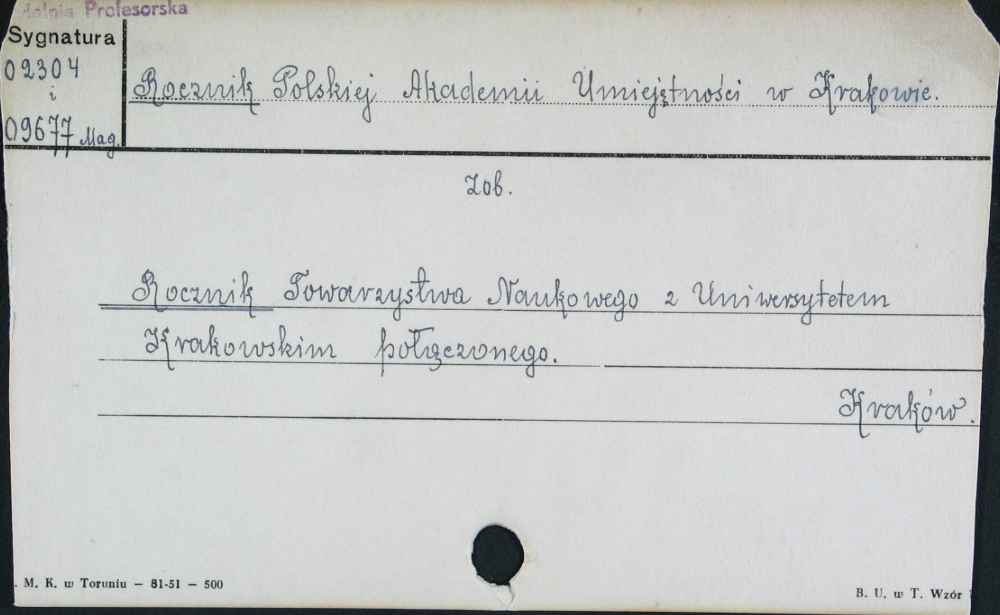 Profesorska
Sygnatura
02304
i
09677 Mag.
Rocznik Polskiej Akademii Umiejętności w Krakowie.
Zob.
Rocznik Towarzystwa Naukowego z Uniwersytetem
Krakowskim połączonego.
Kraków.
. M. K. w Toruniu — 81-51 — 500
B. U. w T. Wzór